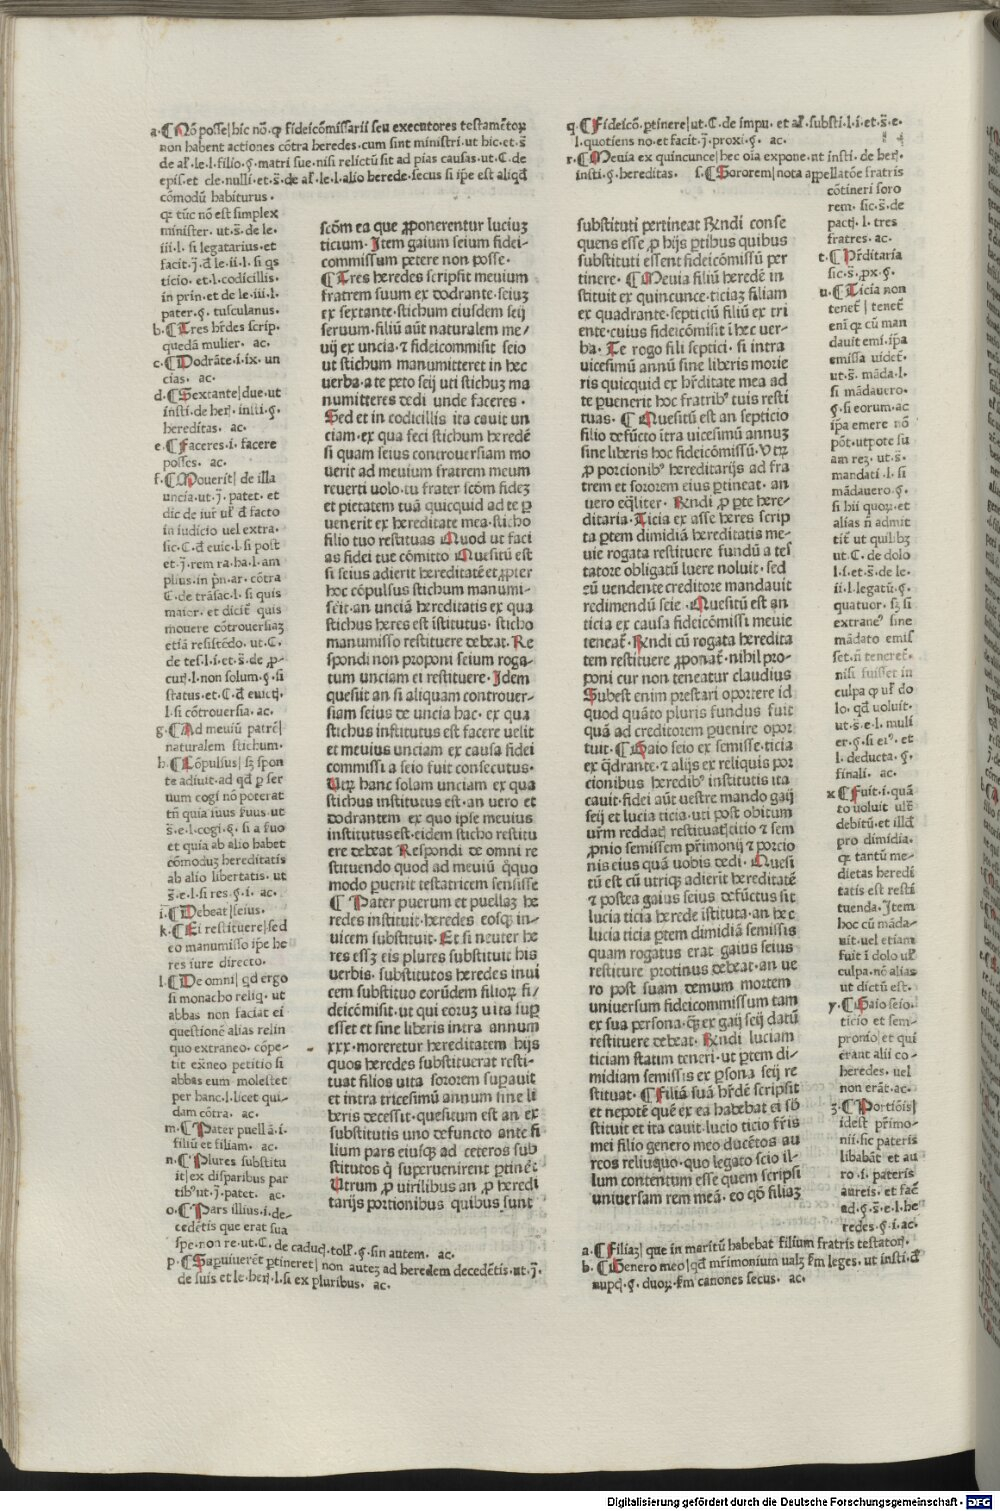 a.¶Nō posse|hic nō.ꝙ fideicōmissarii seu executores testamētoꝝ
non habent actiones cōtra heredes.cum sint ministri.ut hic.et.s̄
de al'.le.l.filio.§.matri sue.nisi relictū sit ad pias causas.ut.C.de
epis.et cle.nulli.et.s̄.de al'.le.l.alio herede.secus si ip̄e est aliqđ
cōmodū habiturus.
qꝛ tūc nō est simplex
minister. ut.s̄.de le.
iii.l. si legatarius.et
facit.j̄.đ le.ii.l.si qs
ticio. et.l.codicillis.
in prin.et de le.iii.l.
pater.§. tusculanus.
b.¶Tres hr̄des scrip.
quedā mulier. ac.
c.¶Dodrāte.i.ix.un
cias. ac.
d.¶Sextante|due.ut
insti.de her̄. insti.§.
hereditas. ac.
e.¶Faceres.i. facere
posses. ac.
f.¶Mouerit| de illa
uncia.ut.j̄. patet. et
dic de iur̄ ul' đ facto
in iudicio uel extra.
sic.C.đ euic.l.si post
et.j̄.rem ra.ha.l.am
plius.in pn̄.ar. cōtra
C.de trāsac.l. si quis
maior. et dicit̄ quis
mouere cōtrouersiaꝫ
etiā resistēdo. ut.C.
de tes.l.i.et.s̄.de ꝓ-
cur̄.l.non solum.§.si
status.et.C.đ euictj.
l.si cōtrouersia. ac.
g.¶Ad meuiū patrē|
naturalem stichum.
h.¶Cōpulsus| sꝫ spon
te adiuit.ad qđ ꝑ ser
uum cogi nō poterat
tn̄ quia iuus fuus.ut
s̄.e.l.cogi.§. si a fuo
et quia ab alio habet
cōmoduꝫ hereditatis
ab alio libertatis. ut
s̄.e.l.si res.§.i. ac.
i.¶Debeat|seius.
k.¶Ei restituere|sed
eo manumisso ip̄e he
res iure directo.
l.¶De omni| qđ ergo
si monacho reliq̄. ut
abbas non faciat ei
questionē alias relin
quo extraneo. cōpe-
tit ex̄neo petitio si
abbas eum molestet
per hanc.l.licet qui-
dam cōtra. ac.
m.¶Pater puell ā.i.
filiū et filiam. ac.
n.¶Plures substitu
it|ex disparibus par
tibꝰut.j̄.patet. ac.
o.¶Pars illius.i.de-
cedētis que erat sua
spe.non re.ut.C. de caduc̄.toll'.§.sin autem. ac.
p.¶Supuiuerēt ꝑtineret| non auteꝫ ad heredem decedētis.ut.j̄.
de suis et le.her̄.l.si ex pluribus. ac.
scōm ea que ꝓponerentur luciuꝫ
ticium. Item gaium seium fidei-
commissum petere non posse.
¶Tres heredes scripsit meuium
fratrem suum ex dodrante.seiuꝫ
ex sextante.stichum eiusdem seij
seruum.filiū aūt naturalem me/
uij ex uncia.⁊ fideicommisit seio
ut stichum manumitteret in hec
uerba.a te peto seij uti stichuꝫ ma
numitteres dedi unde faceres.
Sed et in codicillis ita cauit un
ciam.ex qua feci stichum heredē
si quam seius controuersiam mo
uerit ad meuium fratrem meum
reuerti uolo.tu frater scōm fideꝫ
et pietatem tuā quicquid ad te ꝑ
uenerit ex hereditate mea.sticho
filio tuo restituas Quod ut faci
as fidei tue cōmitto Quesitū est
si seius adierit hereditatē et ꝓpter
hoc cōpulsus stichum manumi-
serit.an unciā hereditatis ex qua
stichus heres est istitutus. sticho
manumisso restituere debeat. Re
spondi non proponi seium roga-
tum unciam ei restituere. Idem
quesiit an si aliquam controuer-
siam seius de uncia hac. ex qua
stichus institutus est facere uelit
et meuius unciam ex causa fidei
commissi a seio fuit consecutus.
Utꝝ hanc solam unciam ex qua
stichus institutus est.an uero et
dodrantem ex quo ipse meuius
institutus est.eidem sticho restitu
ere debeat Respondi de omni re
stituendo quod ad meuiū q̄quo
modo ꝑuenit testatricem sensisse
¶Pater puerum et puellaꝫ he
redes instituit.heredes eosqꝫ in-
uicem substituit. Et si neuter he
res essꝫ eis plures substituit his
uerbis. substitutos heredes inui
cem substituo eorūdem filioꝝ fi/
deicōmisit.ut qui eorum uita suꝑ
esset et sine liberis intra annum
xxx.moreretur hereditatem hijs
quos heredes substituerat resti-
tuat filios uita sororem suꝑauit
et intra tricesimū annum sine li
beris decessit.quesitum est an ex
substitutis uno defuncto ante fi
lium pars eiusqꝫ ad ceteros sub
stitutos q̄ superuenirent ꝑtinēt
Utrum ꝓ uirilibus an ꝓ heredi
tarijs portionibus quibus sunt
q.¶Fideicō.ꝑtinere|ut.C.de impu. et al'.substi.l.i.et.s̄.e.
l.quotiens no.et facit.j̄.proxi.§. ac.
r.¶Meuia ex quincunce|hec oīa expone.nt insti. de her̄.
insti.§.hereditas. s.¶Sororem|nota appellatōe fratris
cōtineri soro
rem. sic.s̄.de
pactj. l. tres
fratres. ac.
t.¶Pr̄ditaria
sic.s̄.ꝓx.§.
u.¶Ticia non
tenet̄| tenet̄
enī qꝛ cū man
dauit emi.ip̄a
emissa uidet̄.
ut.s̄. māda.l.
si mādauero.
§.si eorum.ac
ip̄a emere nō
pōt.utpote su
am reꝫ. ut.s̄.
mandati.l. si
mādauero.§.
si hii quoꝝ.et
alias n̄ admit
tit̄ ut quilibꝫ
ut.C.de dolo
l.i.et.s̄.de le.
ii.l.legatū.§.
quatuor. sꝫ si
extraneꝰ sine
mādato emis
set.n̄ teneret̄.
nisi fuisset in
culpa ꝙ ul' do
lo. qđ uoluit.
ut.s̄.e.l. muli
er.§.si eiꝰ. et
l. deducta.§.
finali. ac.
x¶Fuit.i.quā
to uoluit ult̄
debitū.et illđ
pro dimidia.
qꝛ tantū me-
dietas heredi
tatis est resti
tuenda.Item
hoc cū māda-
uit.uel etiam
fuit ī dolo ul'
culpa.nō alias
ut dictū est.
y.¶Gaio seio.
ticio et sem-
pronio|et qui
erant alii co-
heredes. uel
non erāt.ac.
ʒ.¶Portiōis|
idest pr̄imo-
nii.sic pateris
libabāt et au
ro .i. pateris
aureis. et facit̄
ad.§.s̄.e.l.he
redes.§.i.ac.
substituti pertineat Rn̄di conse
quens esse ꝓ hijs ꝑtibus quibus
substituti essent fideicōmissū per
tinere. ¶Meuia filiū heredē in
stituit ex quincunce.ticiaꝫ filiam
ex quadrante.septiciū filiū ex tri
ente.cuius fideicōmisit ī hec uer-
ba. Te rogo fili septici. si intra
uicesimū annū sine liberis morie
ris quicquid ex hr̄ditate mea ad
te ꝑuenerit hoc fratribꝰ tuis resti
tuas. ¶Quesitū est an septicio
filio defūcto ītra uicesimū annuꝫ
sine liberis hoc fideicōmissū. Utꝝ
ꝓ porcionibꝰ hereditarijs ad fra
trem et sororem eius ꝑtineat. an
uero eq̄liter. Rn̄di ꝓ ꝑte here-
ditaria.Ticia ex asse heres scrip
ta ꝑtem dimidiā hereditatis me-
uie rogata restituere fundū a tes
tatore obligatū luere noluit. sed
eū uendente creditore mandauit
redimendū seie. Quesitū est an
ticia ex causa fideicōmissi meuie
teneat̄. Rn̄di cū rogata heredita
tem restituere ꝓponat̄.nihil pro-
poni cur non teneatur claudius
Subest enim prestari oportere id
quod quāto pluris fundus fuit
quā ad creditorem ꝑuenire opor
tuit. ¶Gaio seio ex semisse.ticia
ex q̄drante.⁊ alijs ex reliquis por
cionibus heredibꝰ institutis ita
cauit.fidei aūt uestre mando gaij
seij et lucia ticia.uti post obitum
urm̄ reddatj restituatj ticio ⁊ sem
ꝓnio semissem pr̄imonij ⁊ porcio
nis eius quā uobis dedi. Quesi
tū est cū utriqꝫ adierit hereditatē
⁊ postea gaius seius defūctus sit
lucia ticia herede īstituta.an hec
lucia ticia ꝑtem dimidiā semissis
quam rogatus erat gaius seius
restiture protinus debeat.an ue
ro post suam demum mortem
uniuersum fideicommissum tam
ex sua persona.q̄ꝫ ex gaij seij datū
restituere debeat. Rn̄di luciam
ticiam statim teneri.ut ꝑtem di-
midiam semissis ex ꝑsona seij re
stituat. ¶Filiā suā hr̄dē scripsit
et nepotē quē ex ea habebat ei sb̄
stituit et ita cauit.lucio ticio fr̄is
mei filio genero meo ducētos au
reos reliuquo.quo legato scio il-
lum contentum esse quem scripsi
uniuersam rem meā. eo qō filiaꝫ
a.¶Filiaꝫ| que in maritū habebat filium fratris testatorꝭ.
b.¶Genero meo|qđ mr̄imonium ualꝫ ẜm leges.ut insti.đ
nupc̄.§.duoꝝ.ẜm canones secus. ac.
Digitalisierung gefördert durch die Deutsche Forschungsgemeinschaft - DFG